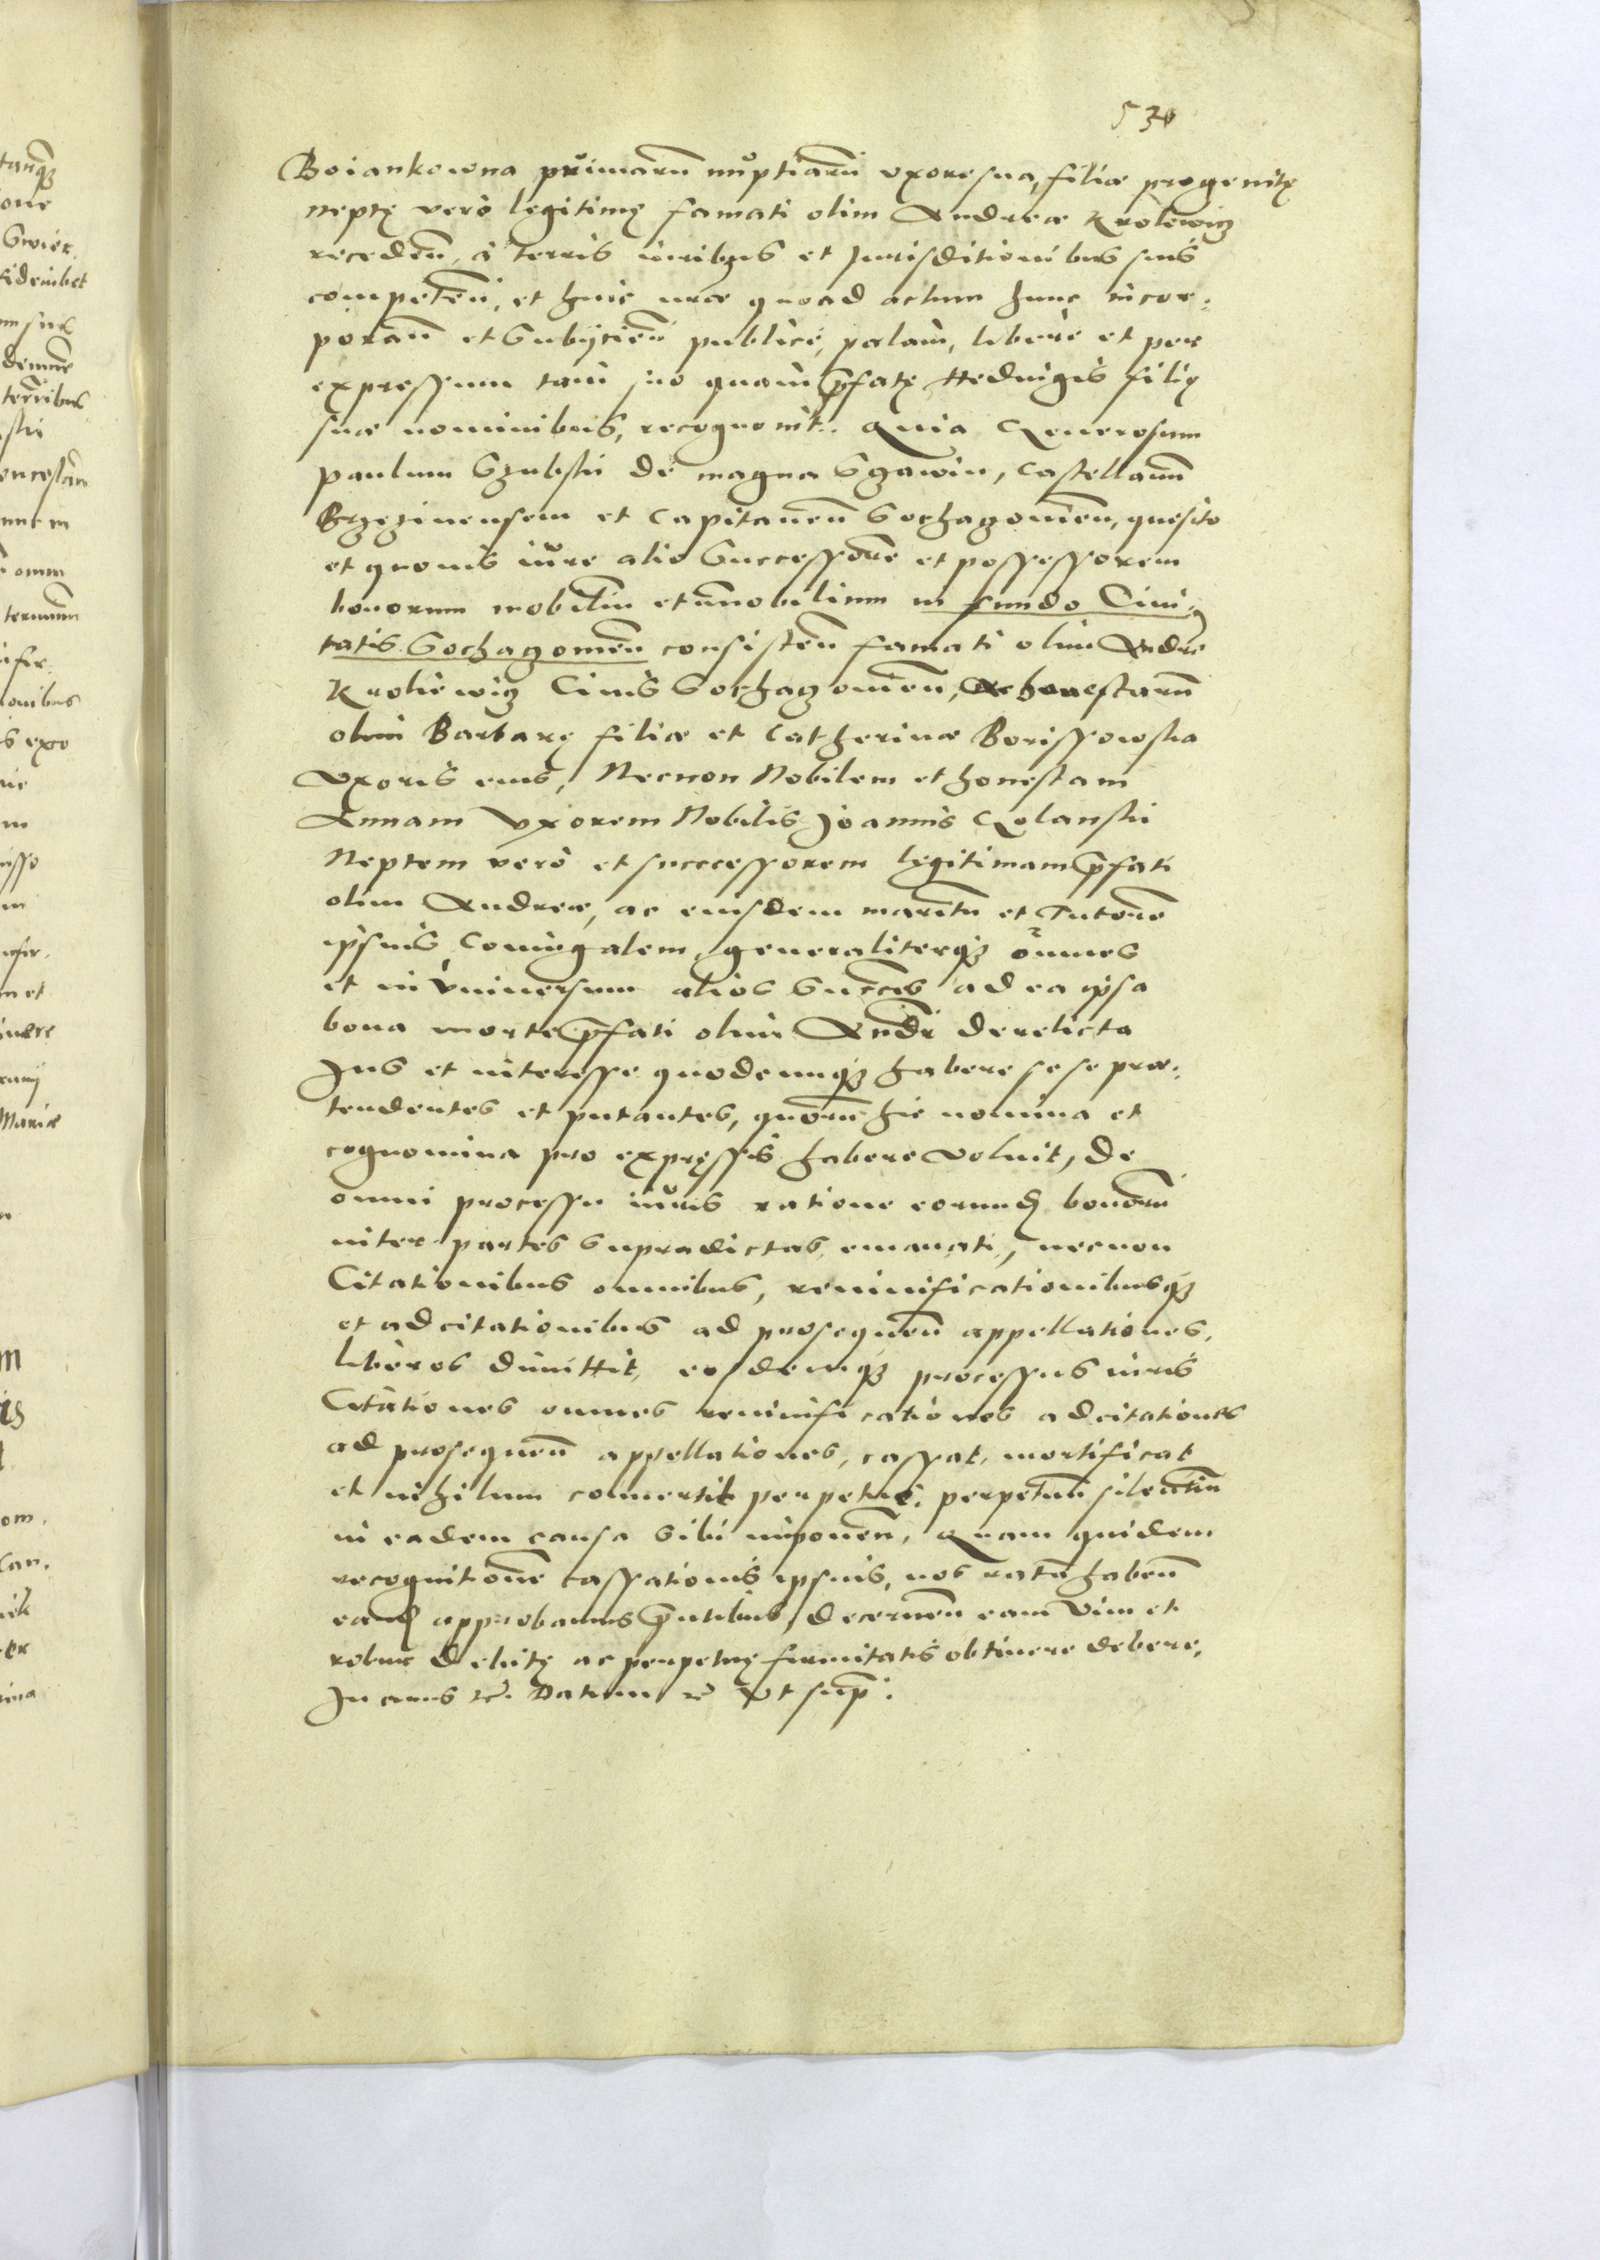 530
Boiankowna primarū nuptiarū uxore sua, filiæ progenitę
neptę verò legitimę famati olim Andreæ Krolewicz
receden̄, à terris iuribus et Jurisditionibus suis
competen̄, et huic nræ quoad actum hunc incor:
poran̄ et Subijcien̄ publicè, palam, liberè et per
expressum tam suo quam p̄fatę Hedvigis filię
suæ nominibus, recognovit. Quia Generosum
Paulum Szubski de magna Szgawin, Castellanū
Brzezinensem et Capitaneū Sochazovien̄, quesito
et quovis iure alio Successorē et possessorem
bonorum mobiliū et immobilium in fundo Civi,
tatis Sochazovien̄ consisten̄ famati olim Andreę
Krolewicz Civis Sochazovien̄, Ac honestarū
olim Barbarę filiæ et Catherinæ Borissowska
Uxoris eius, Necnon Nobilem et honestam
Annam Uxorem Nobilis Joannis Golanski
Neptem verò et successorem legitimam p̄fati
olim Andreæ, ac eiusdem maritū et Tutorē
ipsius Coniugalem, generaliterq₃ omnes
et in Universum alios Succes̄ ad ea ipsa
bona morte p̄fati olim Andr̄ derelicta
Jus et interesse quodcunq₃ habere se se præ:
tendentes et putantes, quorū hic nomina et
cognomina pro expressis habere voluit, de
omni processu iuris ratione eorund̄ bonorū
inter partes supradictas emanati, necnon
Citationibus omnibus, reinnificationibusq₃
et adcitationibus ad prosequen̄ appellationes,
liberos dimittit, eosdemq₃ processus iuris
Citationes omnes reinnificationes adcitationes
ad prosequen̄ appellationes, cassat, mortificat
et nihilum convertit perpetuè, perpetuū silentiū
in eadem causa sibi imponen̄, Quam quidem
recognitionē cassationis ipsius, nos ratā haben̄
eand̄ approbamus p̄ntibus, decernen̄ eam vim et
robur debitę ac perpetuę firmitatis obtinere debere,
In cuius rē. Datum rē Ut sup̄.